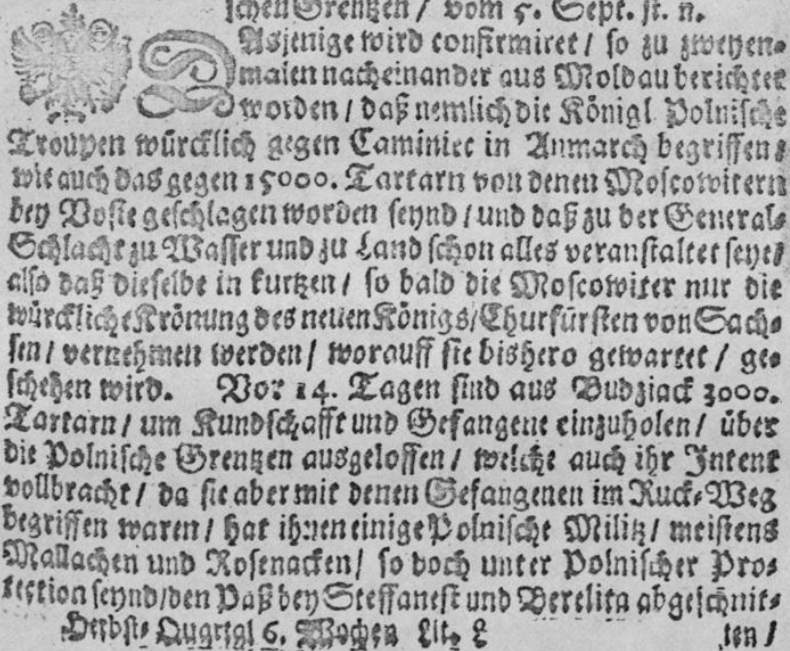 schen Grentzen / vom 5. Sept. st. n.
DAsjenige wird confirmiret / so zu zweyen-
malen nacheinander aus Moldau berichtet
worden / daß nemlich die Königl Polnische
Troupen würcklich gegen Caminiec in Anmarch begriffen;
wie auch das gegen 15000. Tartarn von denen Moscowitern
bey Poste geschlagen worden seynd / und daß zu der General-
Schlacht zu Wasser und zu Land schon alles veranstaltet seye/
also daß dieselbe in kurtzen / so bald die Moscowiter nur die
würckliche Krönung des neuen Königs/Churfürsten von Sach-
sen / vernehmen werden / worauff sie bishero gewartet / ge-
schehen wird. Vor 14. Tagen sind aus Budziack 3000.
Tartarn / um Kundschafft und Gefangene einzuholen / über
die Polnische Grentzen ausgeloffen / welche auch ihr Intent
vollbracht / da sie aber mit denen Gefangenen im Ruck-Weg
begriffen waren / hat ihnen einige Polnische Militz / meistens
Wallachen und Rosenacken / so doch unter Polnischer Pro-
tection seynd/den Paß bey Steffanest und Berelita abgeschnit-
Herbst- Quartal 6. Wochen Lit. L ten /